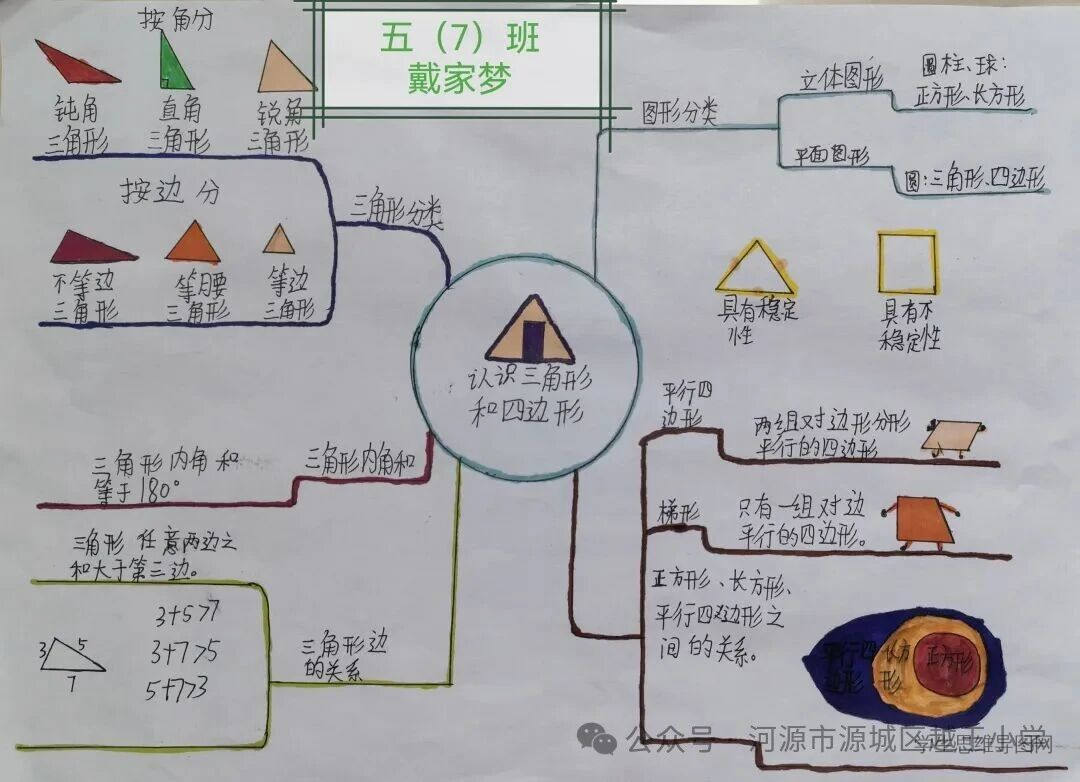 五（7）班
戴家梦
按角分
钝角
三角形
直角
三角形
锐角
三角形
按边分
不等边
三角形
等腰
三角形
等边
三角形
三角形分类
图形分类
立体图形
圆柱、球：
正方形、长方形
平面图形
圆：三角形、四边形
具有稳定
性
具有不
稳定性
认识三角形
和四边形
三角形内角和
等于180°
三角形内角和
三角形任意两边之
和大于第三边。
3
5
7
3+5>7
3+7>5
5+7>3
三角形边
的关系
平行四
边形
两组对边形分形
平行的四边形
梯形
只有一组对边
平行的四边形。
正方形、长方形、
平行四边形之
间的关系。
平行四
边形
长方
形
正方形
公众号
河源市源城区越王小学
学生思维导图网